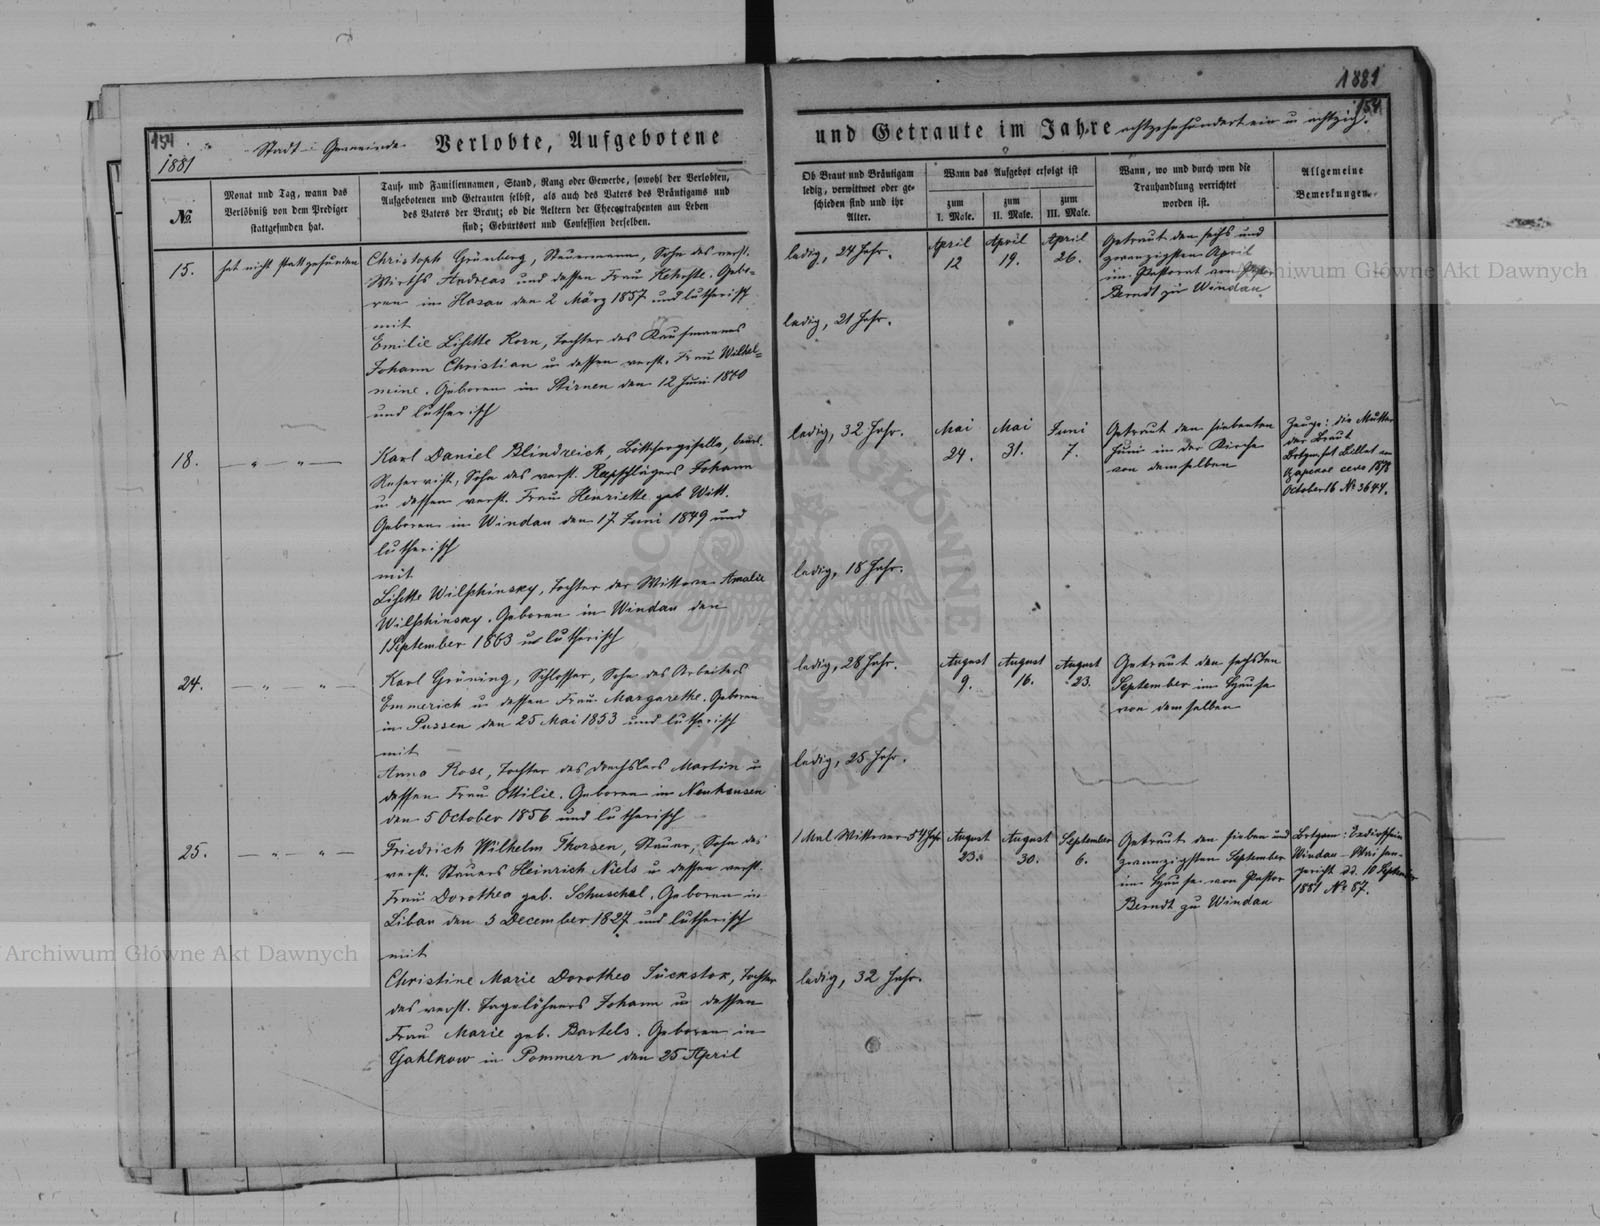 1881
154
154
1881
Stadt Gemeinde Verlobte, Aufgebotene
und Getraute im Jahre achtzehnhundert ein u achtzig.
№.
Monat und Tag, wann das
Verlöbniß von dem Prediger
stattgefunden hat.
Tauf- und Familiennamen, Stand, Rang oder Gewerbe, sowohl der Verlobten,
Aufgebotenen und Getrauten selbst, als auch des Vaters des Bräutigams und
des Vaters der Braut; ob die Aeltern der Ehecontrahenten am Leben
sind; Geburtsort und Confession derselben.
Ob Braut und Bräutigam
ledig, verwittwet oder ge-
schieden sind und ihr
Alter.
Wann das Aufgebot erfolgt ist
zum
I. Male.
zum
II. Male.
zum
III. Male.
Wann, wo und durch wen die
Trauhandlung verrichtet
worden ist.
Allgemeine
Bemerkungen.
15.
hat nicht stattgefunden
Christoph Grünberg, Steuermann, Sohn des verst.
Wirths Andreas und dessen Frau Gebo-
ren in Hasau den 2 März 1857 und lutherisch
mit
Emilie Lisette Korn, Tochter des Kaufmannes
Johann Christian u dessen verst. Frau Wilhel-
mine. Geboren in Stirnen den 12 Juni 1860
und lutherisch
ledig, 24 Jahr.
ledig, 21 Jahr.
April
12
April
19.
April
26.
Getraut den sechs und
zwanzigsten April
im Pastorat von Pastor
Berndt zu Windau
18.
— „ — „ —
Karl Daniel Blindreich, Böttchergeselle, beurl.
Reservist, Sohn des verst. Reepschlägers Johann
u dessen verst. Frau Henriette geb Witt.
Geboren in Windau den 17 Juni 1849 und
lutherisch
mit
Lisette Wilschinsky, Tochter der Wittwe Amalie
Wilschinsky. Geboren in Windau den
1 September 1863 u lutherisch
ledig, 32 Jahr.
ledig, 18 Jahr.
Mai
24.
Mai
31.
Juni
7.
Getraut den siebenten
Juni in der Kirche
von demselben
Zeuge: die Mutter
der Braut
Billet
1878
October 16 № 3644.
24.
— „ — „ —
Karl Grüning, Schlosser, Sohn des Arbeiters
Emmerich u dessen Frau Margarethe. Geboren
in Pussen den 25 Mai 1853 und lutherisch
mit
Anna Rose, Tochter des Drechslers Martin u
dessen Frau Ottilie. Geboren in Neuhausen
den 5 October 1856 und lutherisch
ledig, 28 Jahr.
ledig, 25 Jahr.
August
9.
August
16.
August
23.
Getraut den sechsten
September im Hause
von demselben
25.
— „ — „ —
Friedrich Wilhelm Thorsen, Stauer, Sohn des
verst. Stauers Heinrich Niels u dessen verst.
Frau Dorothea geb. Schuschel. Geboren in
Libau den 3 December 1827 und lutherisch
mit
Christine Marie Dorothea Tückstok, Tochter
des verst. Tagelöhners Johann u dessen
Frau Marie geb. Bartels. Geboren in
Gahlkow in Pommern den 25 April
1 Mal Wittwer 54 Jahr
ledig, 32 Jahr.
August
23.
August
30.
September
6.
Getraut den sieben und
zwanzigsten September
im Hause von Pastor
Berndt zu Windau
Windau Waisen-
gericht dd. 10 September
1881 № 87.
Archiwum Główne Akt Dawnych
Archiwum Główne Akt Dawnych